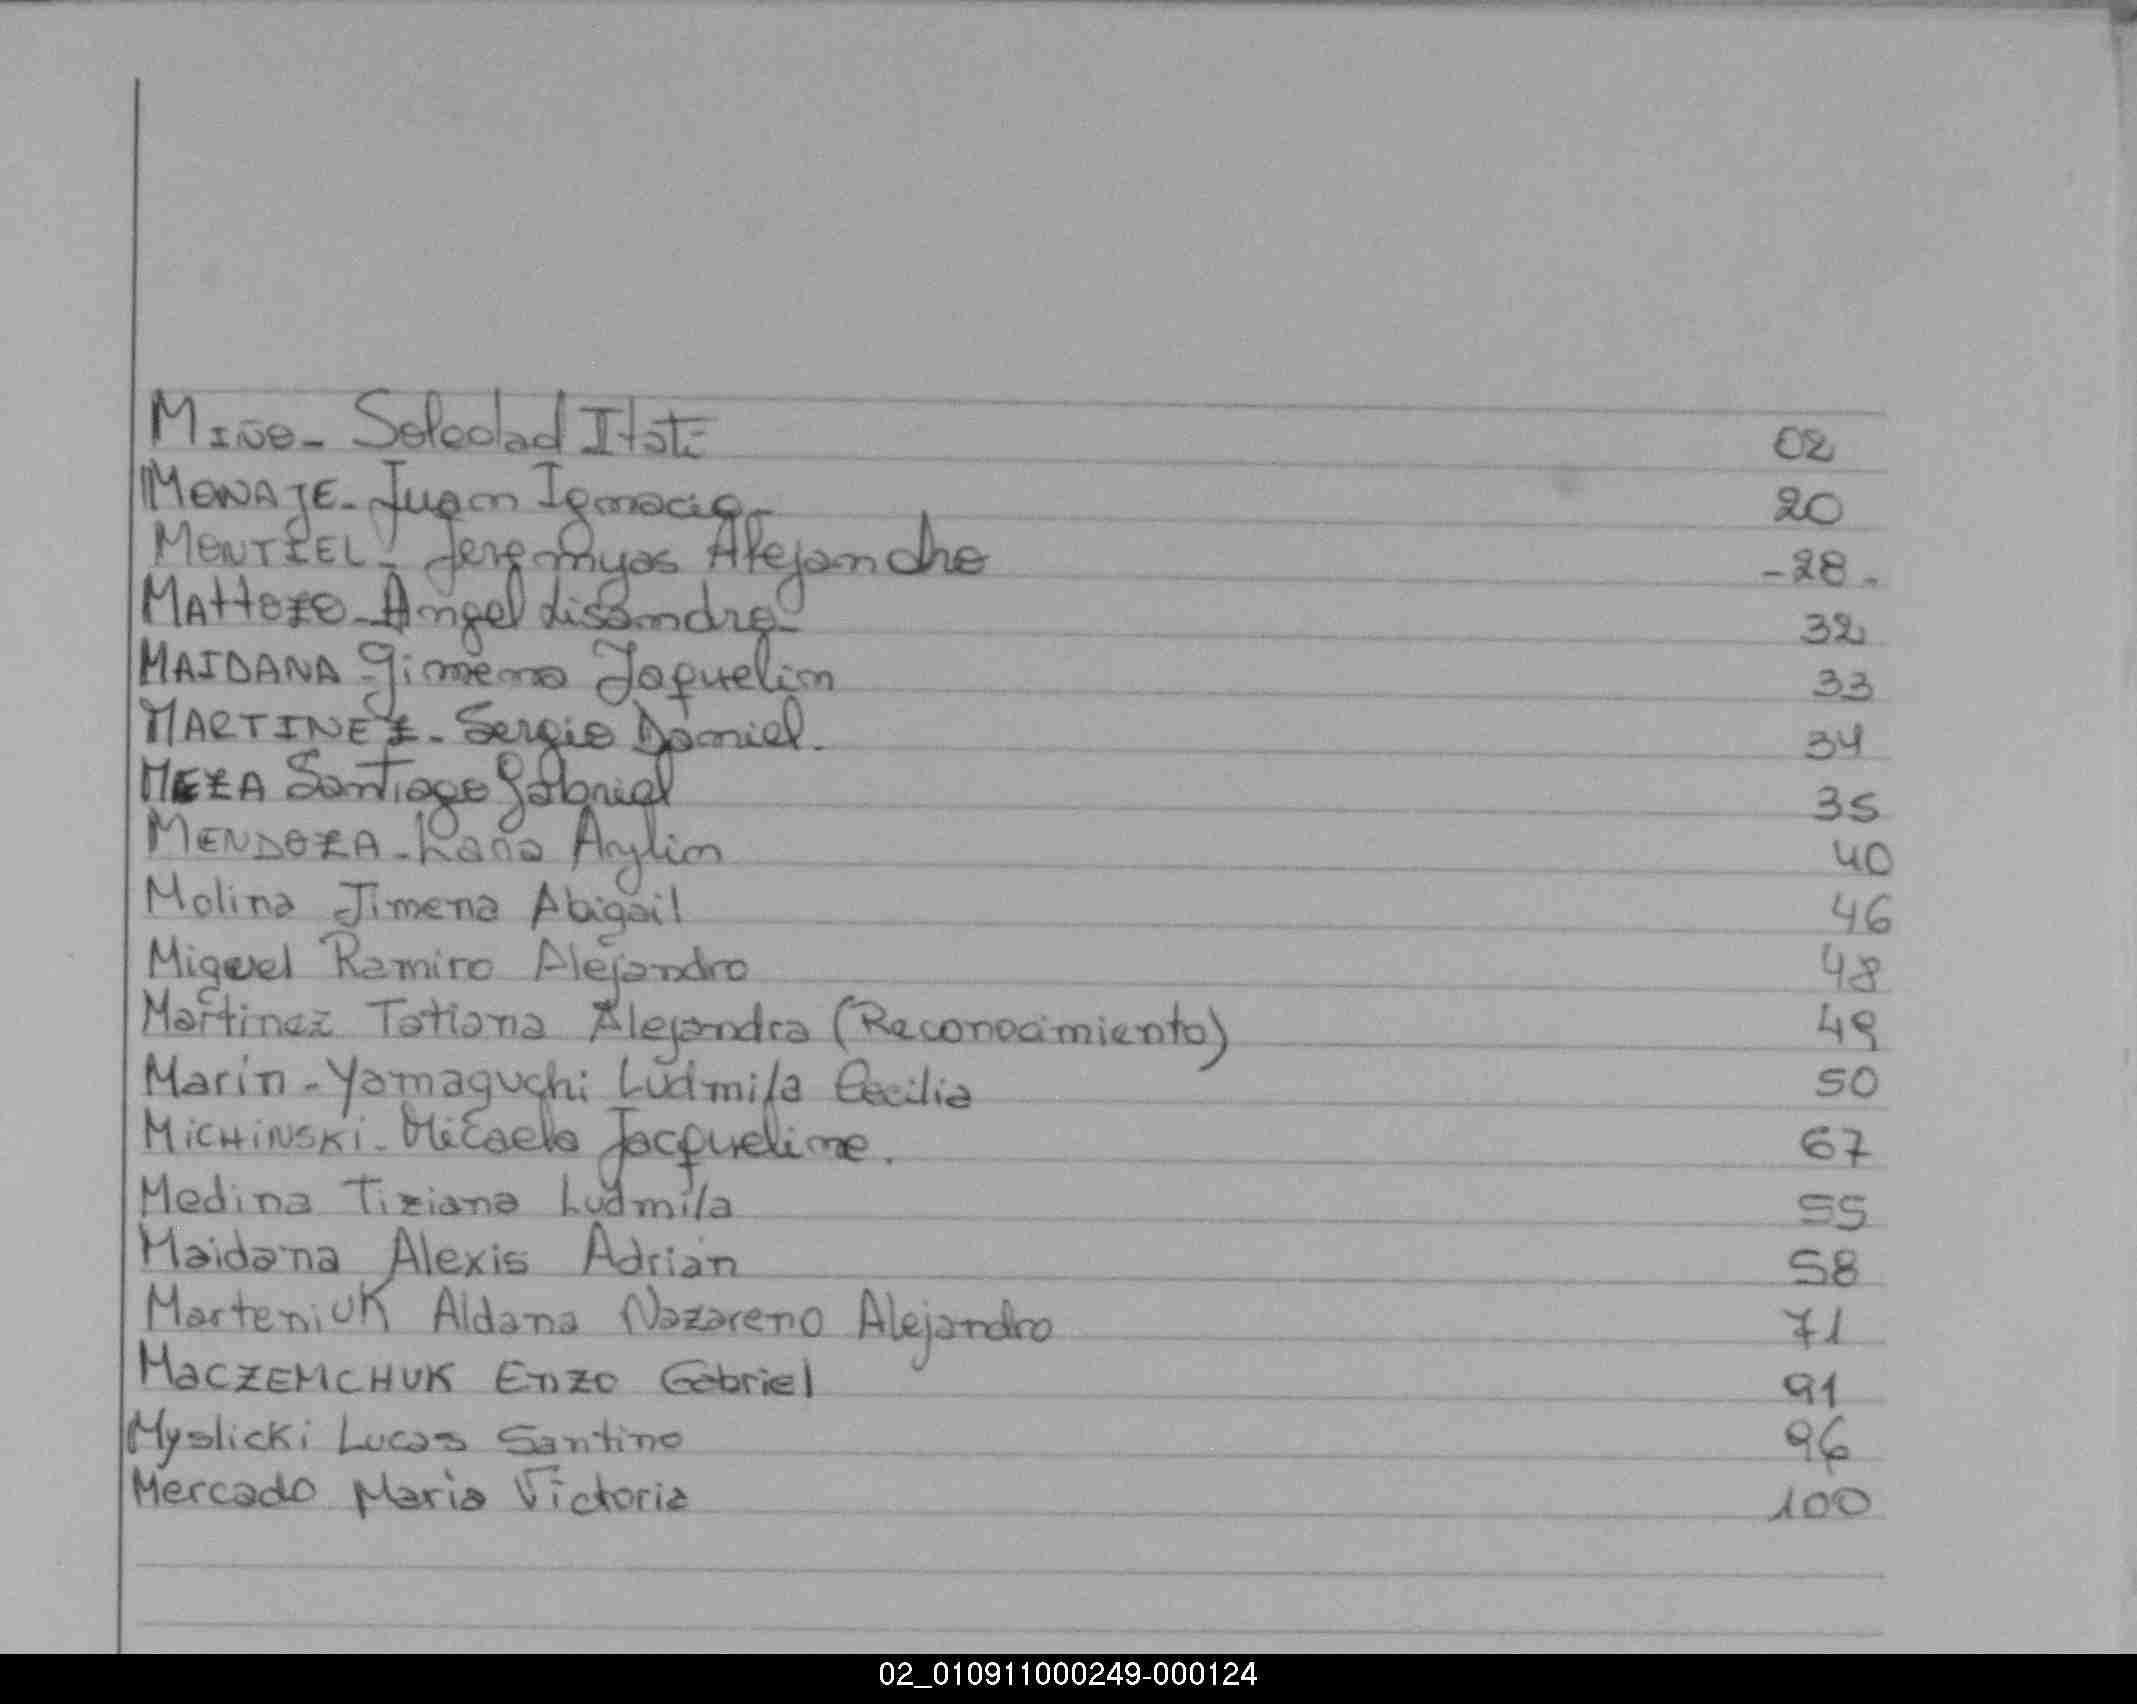 Miño - Soledad Itati 02
MONAJE - Juan Ignacio - 20
MONTIEL - Jeremyas Alejandro - 28 -
MAttozo - Angel Lisandro - 32
MAIDANA - Gimena Jaquelin 33
MARTINEZ - Sergio Daniel. 34
MEZA Santiago Gabriel 35
MENDOZA - Lana Aylin 40
Molina Jimena Abigail 46
Miguel Ramiro Alejandro 48
Martinez Tatiana Alejandra (Reconocimiento) 49
Marin - Yamaguchi Ludmila Cecilia 50
MiCHiNSKi - Micaela Jacqueline. 67
Medina Tiziana Ludmila 55
Maidana Alexis Adrián 58
MarteniUK Aldana Nazareno Alejandro 71
MaCZEMCHUK Enzo Gabriel 91
Myslicki Lucas Santino 96
Mercado Maria Victoria 100
02_010911000249-000124